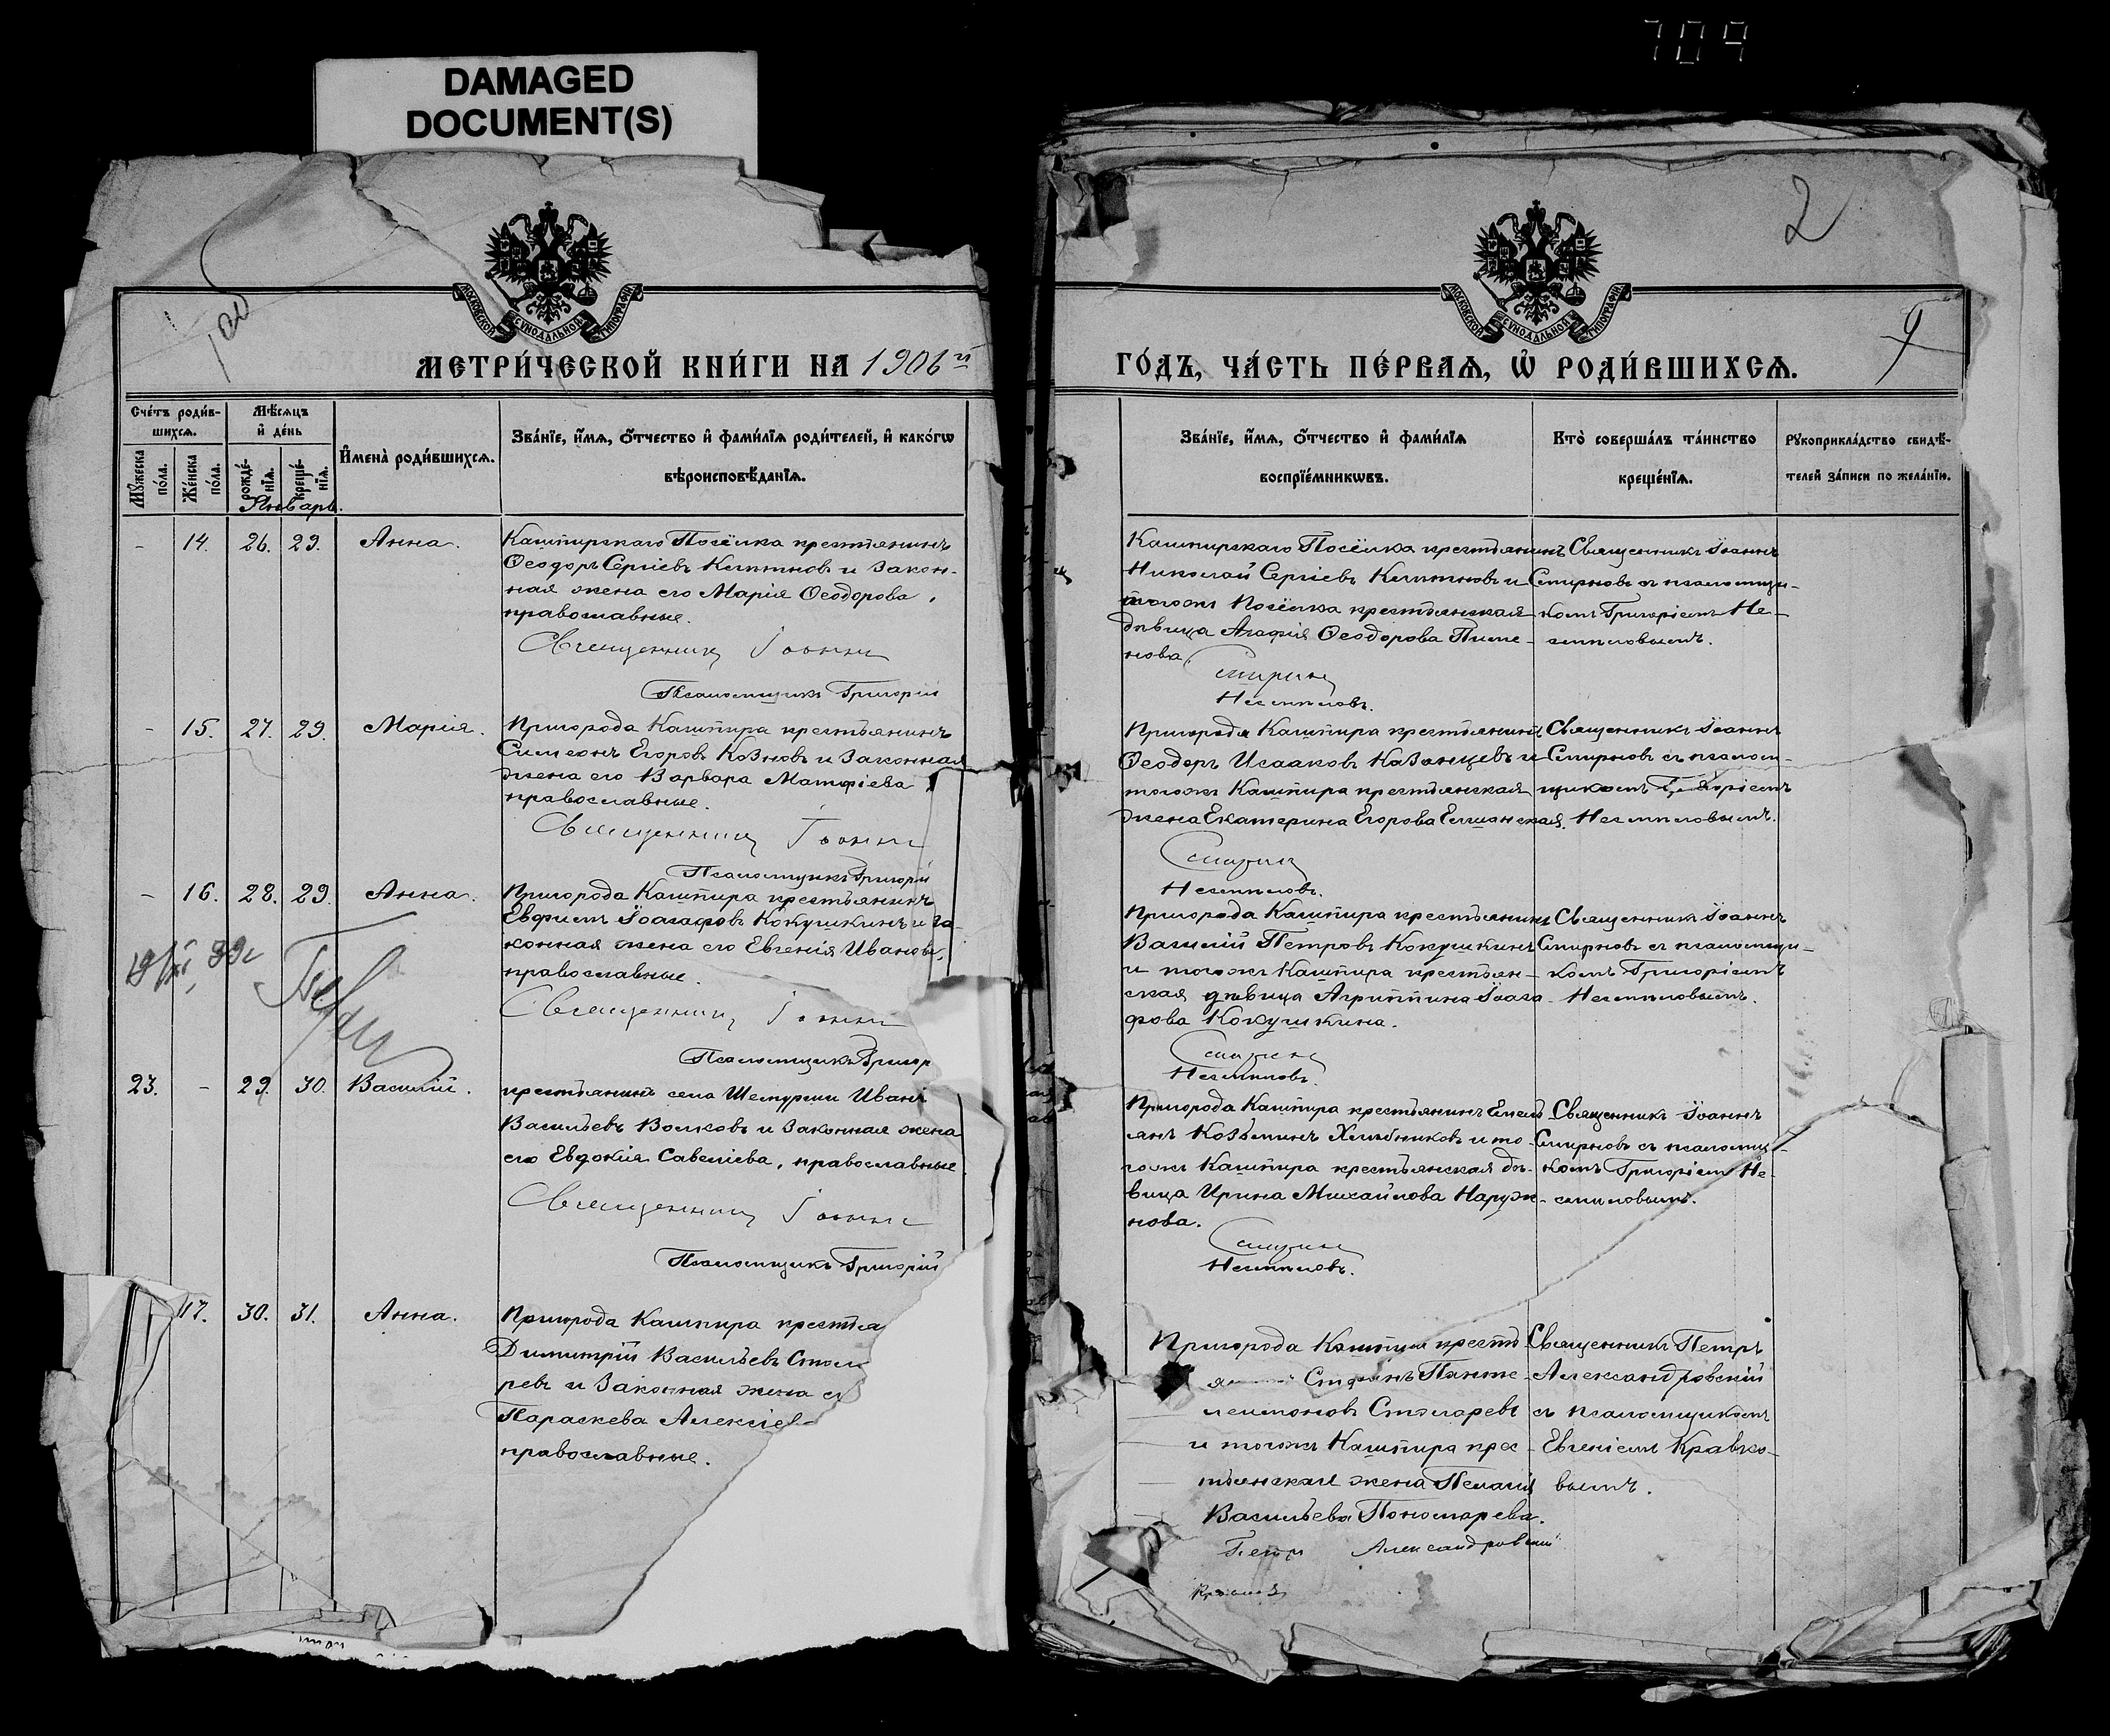 709
DAMAGED
DOCUMENT(S)
2
9
МОСКОВСКОЙ СѴНОДАЛЬНОЙ ТИПОГРАФІИ
МОСКОВСКОЙ СѴНОДАЛЬНОЙ ТИПОГРАФІИ
МЕТРИ́ЧЕСКОЙ КНИ́ГИ НА 1906й
ГО́ДЪ, ЧА́СТЬ ПЕ́РВАѦ, Ѡ҆ РОДИ́ВШИХСѦ.
Сче́тъ роди́вшихсѧ.
Мѣ́сѧцъ и҆ де́нь
Мꙋ́жеска по́ла.
Же́нска по́ла.
рожде́нїѧ.
креще́нїѧ.
Январь.
И҆мена̀ роди́вшихсѧ.
Зва́нїе, и҆́мѧ, ѻ҆́тчество и҆ фами́лїѧ роди́телей, и҆ како́гѡ
вѣроисповѣ́данїѧ.
Зва́нїе, и҆́мѧ, ѻ҆́тчество и҆ фами́лїѧ
воспрїе́мникѡвъ.
Кто̀ соверша́лъ та́инство
креще́нїѧ.
Рꙋкоприкла́дство свидѣ́-
телей за́писи по жела́нїю.
- 14. 26. 29. Анна.
Кашпирскаго Посёлка крестьянинъ
Ѳеодоръ Сергіевъ и закон-
ная жена его Марія Ѳеодорова,
православные.
Священникъ Іоаннъ
Псаломщикъ Григорій
Кашпирскаго Посёлка крестьянинъ
Николай Сергіевъ и
тогожъ Посёлка крестьянская
дѣвица Агафія Ѳеодорова Пиме-
нова.
Смирновъ
Несмѣловъ.
Священникъ Іоаннъ
Смирновъ съ псаломщи-
комъ Григоріемъ Не-
смѣловымъ.
- 15. 27. 29. Марія.
Пригорода Кашпира крестьянинъ
Симеонъ Егоровъ Козновъ и законная
жена его Варвара Матфіева
православные.
Священникъ Іоаннъ
Псаломщикъ Григорій
Пригорода Кашпира крестьянинъ
Ѳеодоръ Исааковъ Казанцевъ и
тогожъ Кашпира крестьянская
жена Екатерина Егорова
Смирновъ
Несмѣловъ.
Священникъ Іоаннъ
Смирновъ съ псалом-
щикомъ Григоріемъ
Несмѣловымъ.
- 16. 28. 29. Анна.
Пригорода Кашпира крестьянинъ
Евфимъ Іоасафовъ Кокушкинъ и за-
конная жена его Евгенія Иванова,
православные.
Священникъ Іоаннъ
Псаломщикъ Григор
Пригорода Кашпира крестьянинъ
Василій Петровъ Кокушкинъ
и тогожъ Кашпира крестьян-
ская дѣвица Агриппина Іоаса-
фова Кокушкина.
Смирновъ
Несмѣловъ.
Священникъ Іоаннъ
Смирновъ съ псаломщи-
комъ Григоріемъ
Несмѣловымъ.
23. - 29. 30. Василій.
крестьянинъ села Шемурши Иванъ
Васильевъ Волковъ и законная жена
его Евдокія Савеліева, православные.
Священникъ Іоаннъ
Псаломщикъ Григорій
Пригорода Кашпира крестьянинъ Емель-
янъ Козьминъ Хлѣбниковъ и то-
гожъ Кашпира крестьянская дѣ-
вица Ирина Михайлова Наруж-
нова.
Смирновъ
Несмѣловъ.
Священникъ Іоаннъ
Смирновъ съ псаломщи-
комъ Григоріемъ Не-
смѣловымъ.
17. 30. 31. Анна.
Пригорода Кашпира крестья
Димитрій Васильевъ Столя
ревъ и законная жена ег
Параскева Алексіев
православные.
Пригорода Кашпира кресть
Стефанъ Панте-
леимоновъ Столяревъ
и тогожъ Кашпира крес-
тьянская жена Пелагія
Васильева Пономарева.
Петръ Александровскій
Священникъ Петръ
Александровскій
съ псаломщикомъ
Евгеніемъ Кравко-
вымъ.